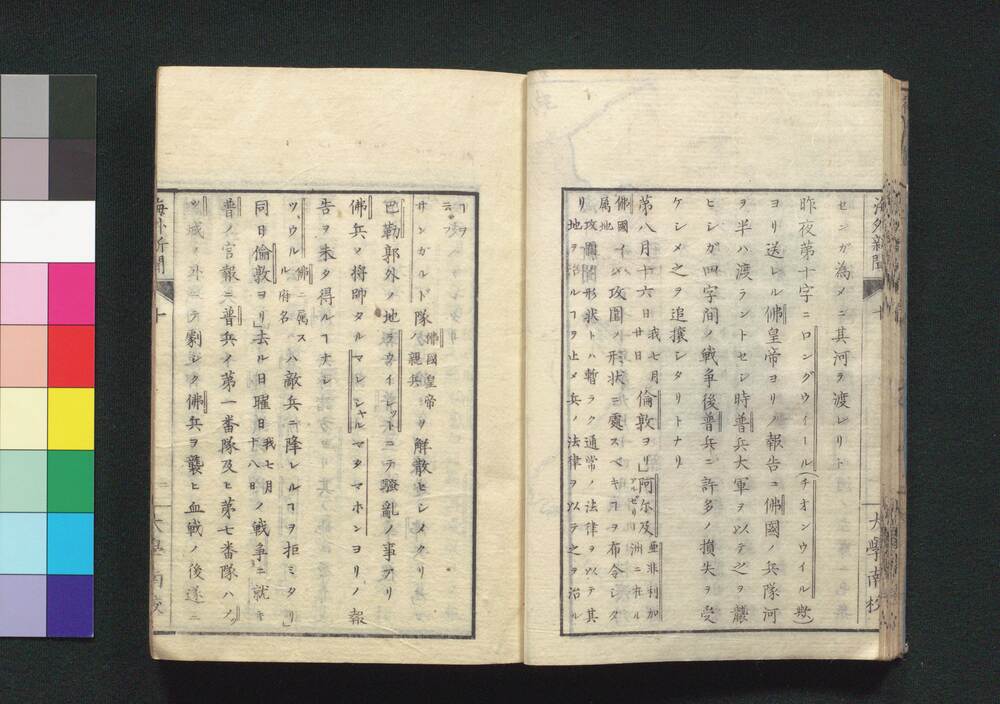 海外新聞
十
大學南校
センガ為メニ其河ヲ渡レリト
昨夜第十字ニロングウイール(チオンウイル歟)
ヨリ送レル佛皇帝ヨリノ報告ニ佛國ノ兵隊河
ヲ半ハ渡ラントセシ時普兵大軍ヲ以テ之ヲ襲
ヒシガ四字間ノ戦争後普兵ニ許多ノ損失ヲ受
ケシメ之ヲ追攘シタリトナリ
第八月十六日我七月廿日倫敦ヨリ」阿尓及アルゼリー亜非利加洲ニ在ル
佛國属地イハ攻圍ノ形状ニ處スベキヿヲ布令シタ
リ攻圍ノ形状トハ暫ラク通常ノ法律ヲ以テ其
地ヲ治ルヿヲ止メ兵ノ法律ヲ以テ之ヲ治ル
ヿヲ云フ
サンガルド隊佛國皇帝ノ親兵ヲ解散セシメタリ
巴勒郭外ノ地ラウイレットニテ騒亂ノ事アリ
佛兵ノ将帥タルマレシャルマクマホンヨリノ報
告ヲ未タ得ルヿナシ
ツ、ウル佛ニ属スル府名ハ敵兵ニ降レルヿヲ拒ミタリ」
同日倫敦ヨリ」去ル日曜日我七月十八日ノ戦争ニ就キ
普ノ官報ニ普兵イ第一番隊及ヒ第七番隊ハメ
ッ城ノ外ニテ劇シク佛兵ヲ襲ヒ血戦ノ後遂ニ
海外新聞
十
二
大學南校